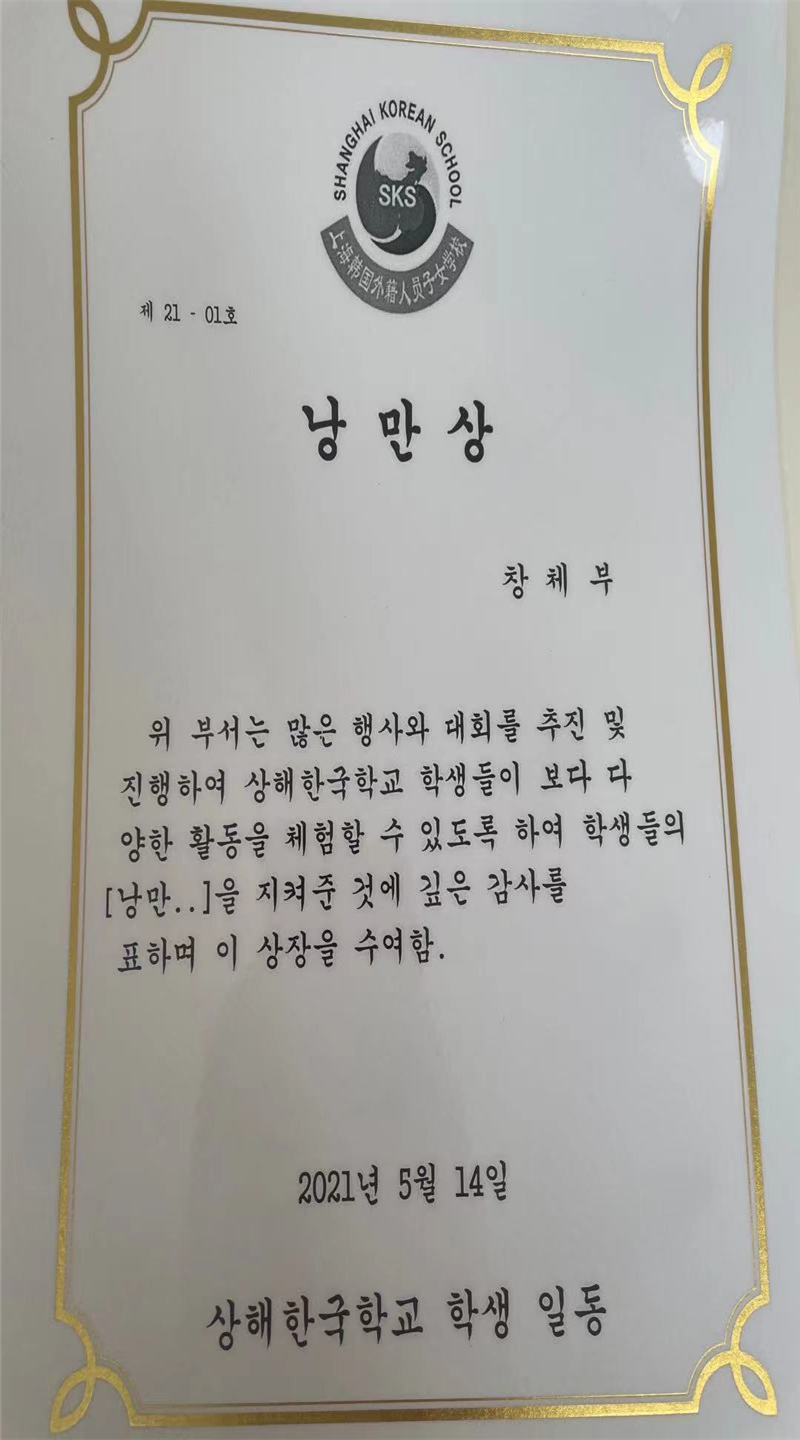 SHANGHAI KOREAN SCHOOL
SKS
上海韩国外籍人员子女学校
제 21 - 01호
낭만상
창체부
위 부서는 많은 행사와 대회를 추진 및
진행하여 상해한국학교 학생들이 보다 다
양한 활동을 체험할 수 있도록 하여 학생들의
[낭만..]을 지켜준 것에 깊은 감사를
표하며 이 상장을 수여함.
2021년 5월 14일
상해한국학교 학생 일동